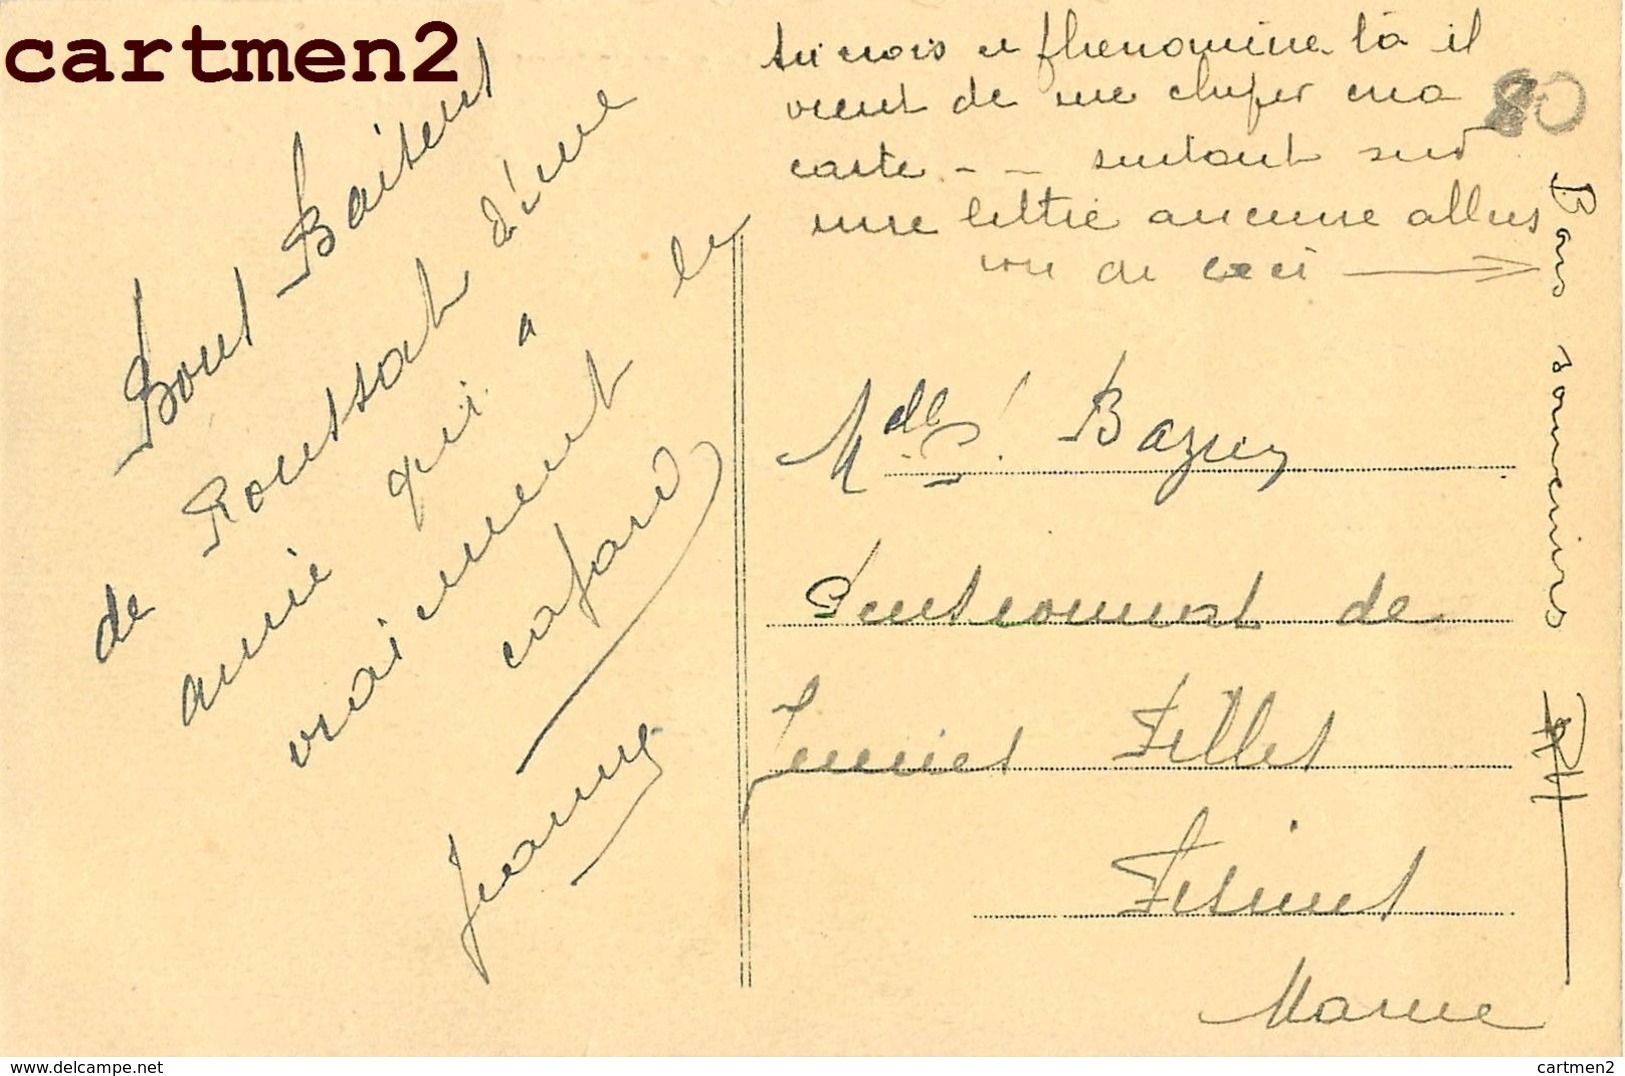 cartmen2
tu vois ce phenomène là il
vient de me chiper ma
carte - - surtout sur
une lettre aucune allus
ion de ceci
80
Bons souvenirs
RH
Bons Baisers
de Roussat d'une
amie qui a
vraiment le
cafard
Jeanne
Mdlle S. Bazin
Pensionnat de
Jeunes Filles
Fismes
Marne
cartmen2